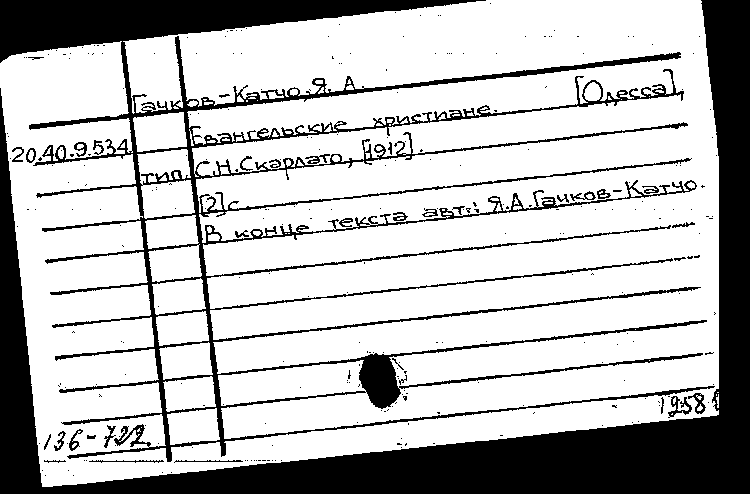 Гачков-Катчо, Я. А.
20.40.9.534 Евангельские христиане. [Одесса],
тип. С.Н.Скарлато, [1912].
[2]с.
В конце текста авт.: Я.А.Гачков-Катчо.
136-722.
1258